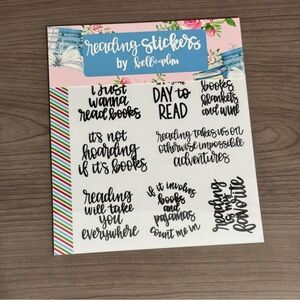 reading stickers
by Krell+plan
I just
wanna
read books
DAY to
READ
books
blankets
and wine
it's not
hoarding
if it's books
reading takes us on
otherwise impossible
adventures
reading
will take
you
everywhere
if it involves
books
and
pajamas
count me in
reading
is my
favorite